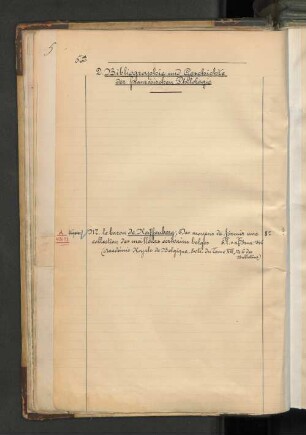 5
52
2. Bibliographie und Geschichte
der französischen Philologie
Mr. le baron de Reiffenberg, Des moyens de former une 8°
collection des meilleurs écrivains belges
(Académie Royale de Belgique. Extr. du tome VIII, No 6 des
Bulletins)